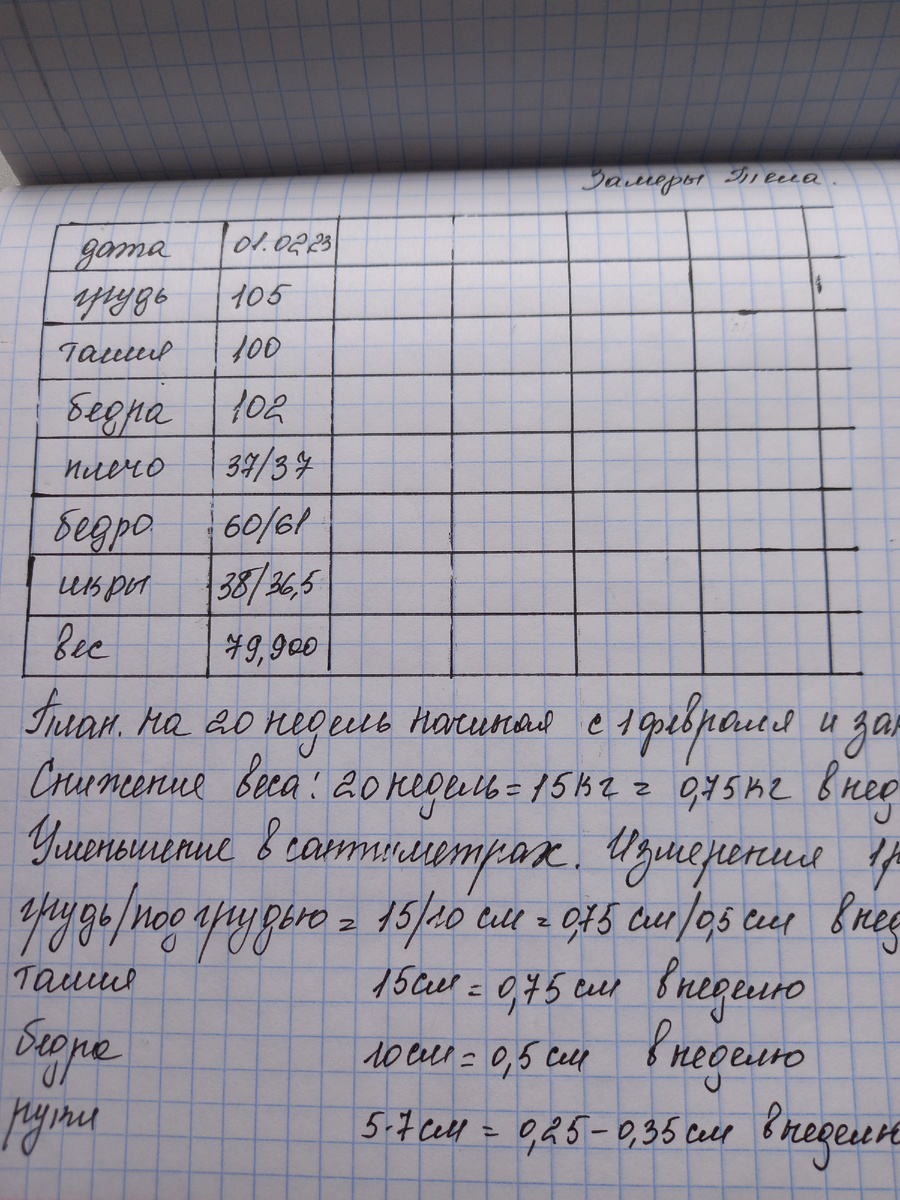 Замеры тела.
дата 01.02.23
грудь 105
талия 100
бедра 102
плечо 37/37
бедро 60/61
икры 38/36,5
вес 79,900
План. на 20 недель начиная с 1 февраля и зак
Снижение веса: 20 недель = 15 кг = 0,75 кг в нед
Уменьшение в сантиметрах. Измерения 1р
грудь/под грудью = 15/10 см = 0,75 см/0,5 см в нед
талия 15 см = 0,75 см в неделю
бедра 10 см = 0,5 см в неделю
руки 5-7 см = 0,25 - 0,35 см в неделю